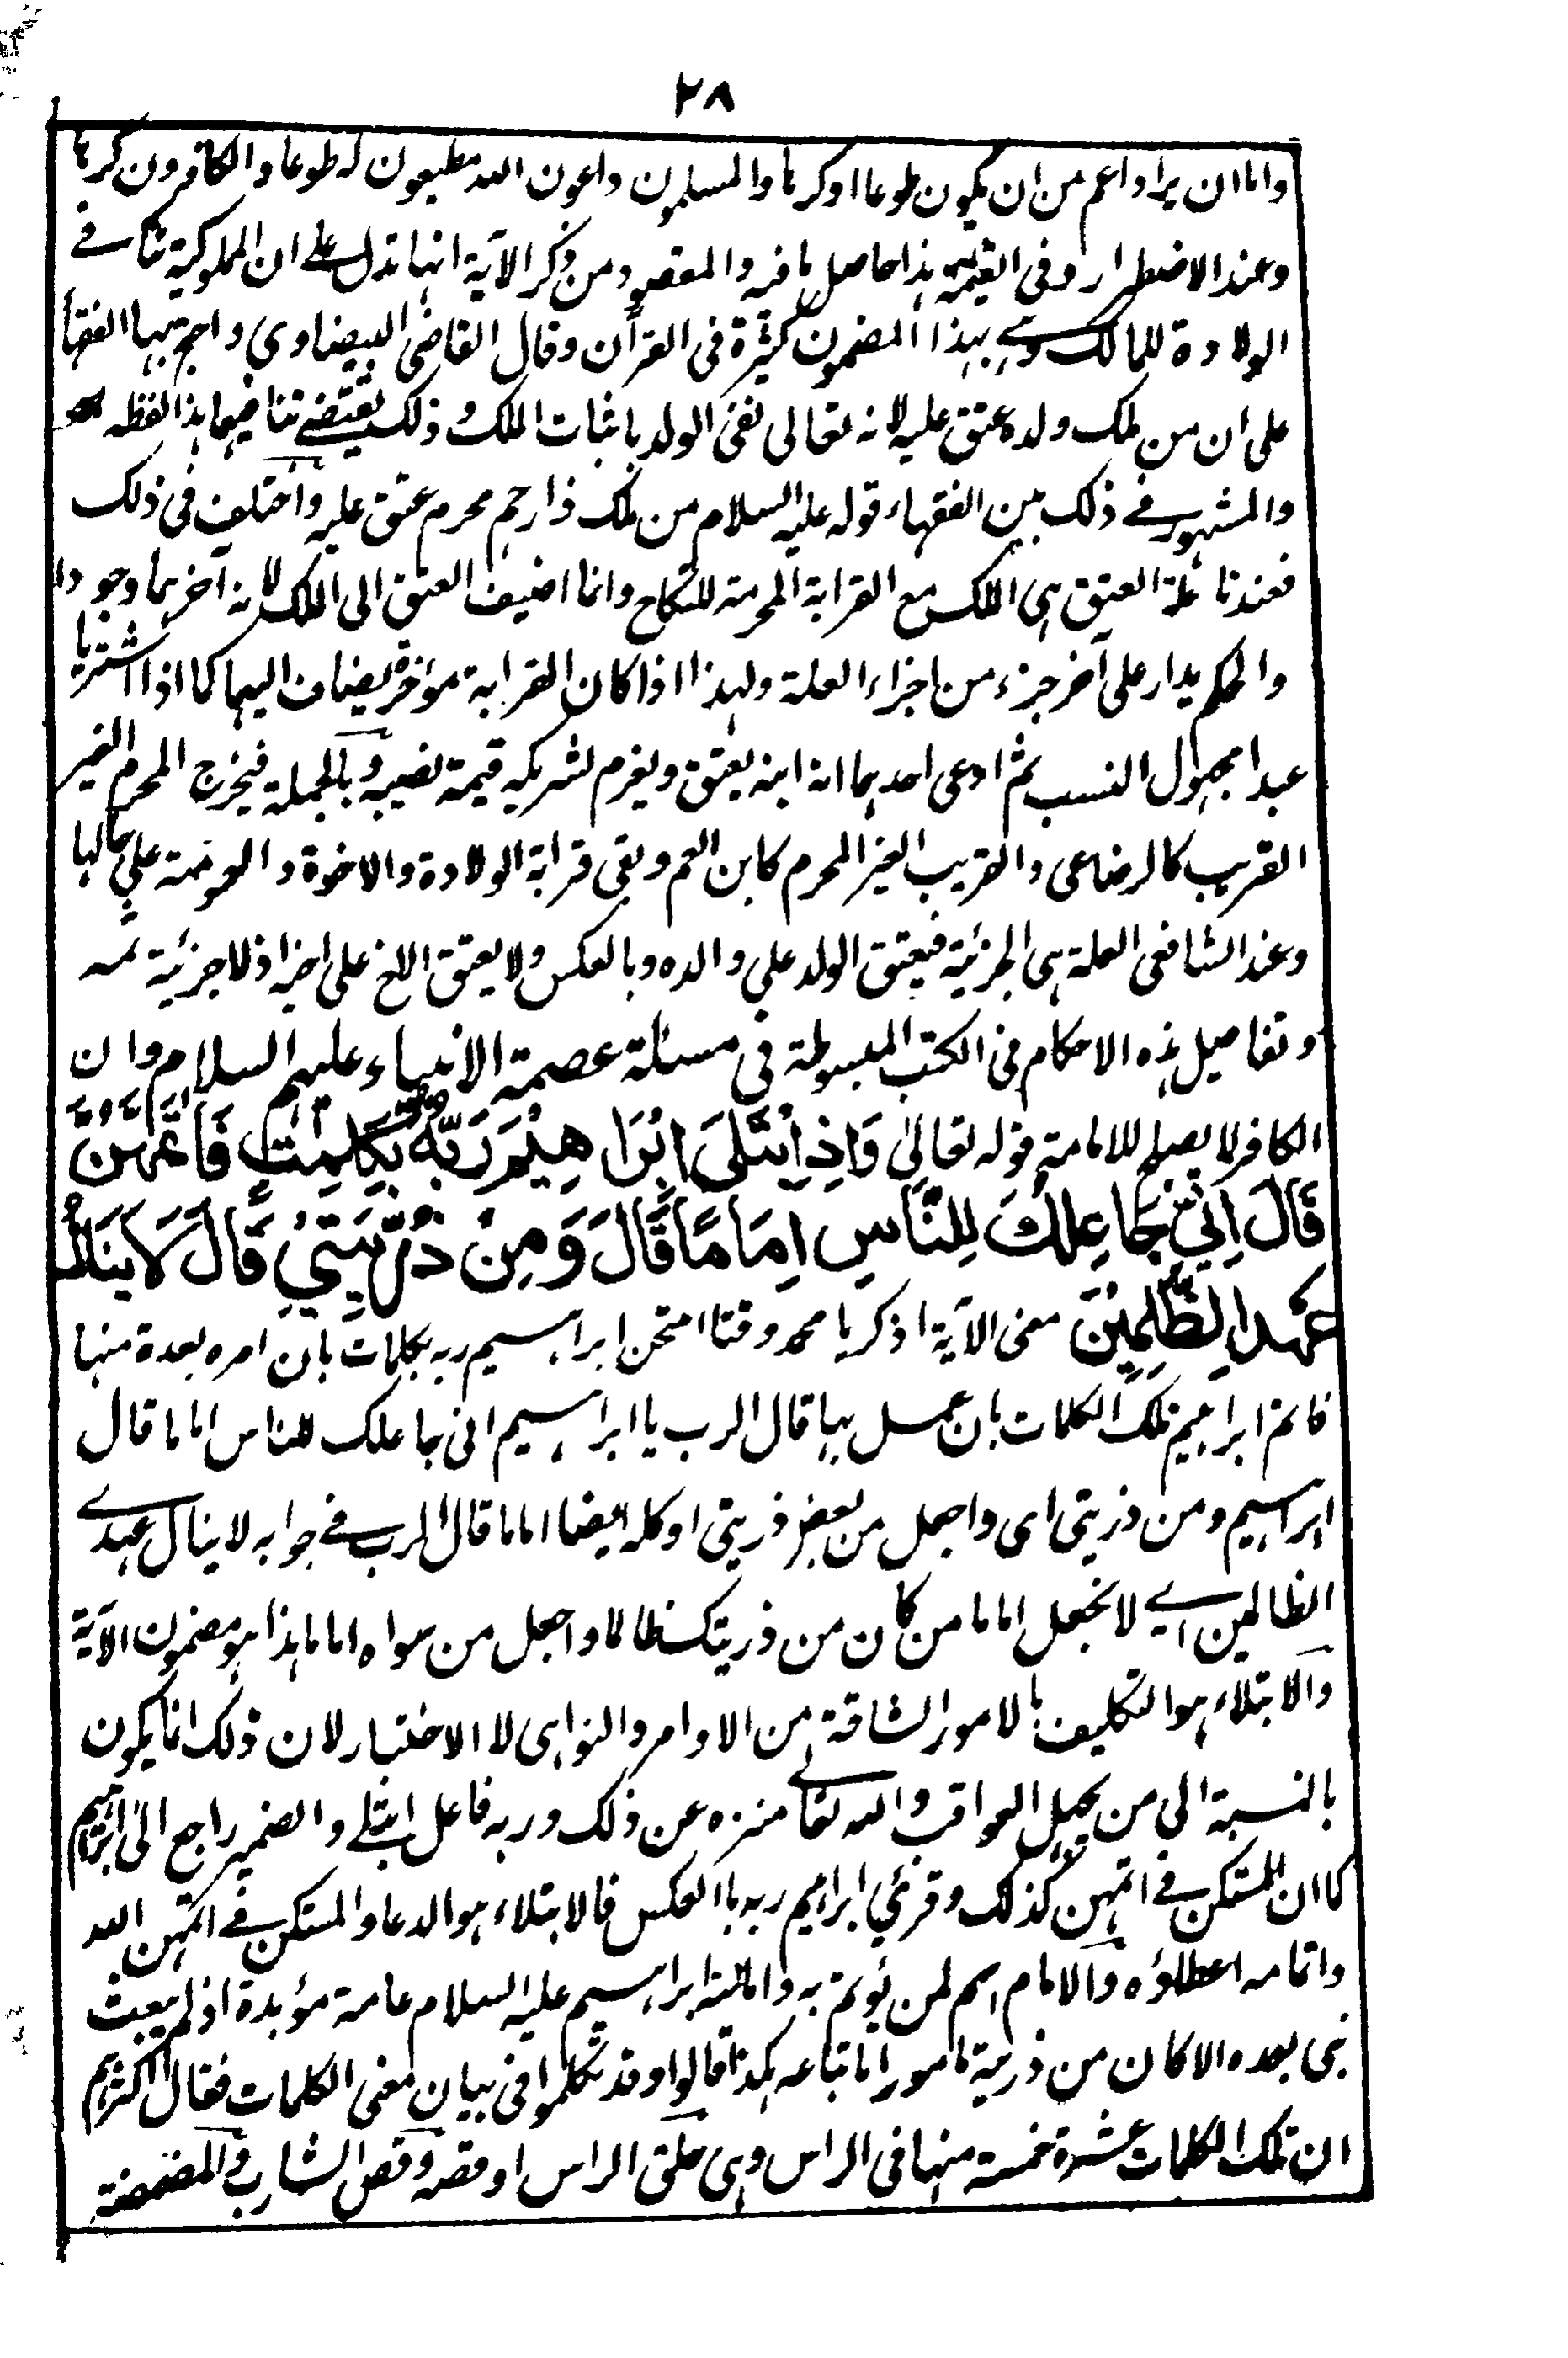 ٢٨
واما ان يراد اعم من ان يكون طوعا او كرها والمسلمون داعون الله مطيعون له طوعا والكافرون كرها
وعند الاضطرار وفي التعميم هذا حاصل ما فيه والمقصود من ذكر الآية انها تدل على ان المملوكية تنافي
الولادة للمالك وهي بهذا المضمون كثيرة في القرآن وقال القاضي البيضاوي واحتج بها الفقهاء
على ان من ملك ولده عتق عليه لانه تعالى نفى الولد باثبات الملك وذلك يقتضي تنافيهما هذا لفظه
والمشهور في ذلك بين الفقهاء قوله عليه السلام من ملك ذا رحم محرم عتق عليه واختلف في ذلك
فعندنا علة العتق هي الملك مع القرابة المحرمة للنكاح وانما اضيف العتق الى الملك لانه آخرهما وجودا
والحكم يدار على آخر جزء من اجزاء العلة ولهذا اذا كان القرابة مؤخرة يضاف اليها كما اذا اشتريا
عبدا مجهول النسب ثم ادعى احدهما انه ابنه يعتق ويغرم لشريكه قيمة نصيبه وبالجملة فيخرج المحرم الغير
القريب كالرضاعي والقريب الغير المحرم كابن العم وبقي قرابة الولادة والاخوة والعمومة على حالها
وعند الشافعي العلة هي الجزئية فيعتق الولد على والده وبالعكس ولا يعتق الاخ على اخيه اذ لا جزئية ثمه
وتفاصيل هذه الاحكام في الكتب المبسوطة في مسئلة عصمة الانبياء عليهم السلام وان
الكافر لا يصلح للامامة قوله تعالى وَاِذِ ابْتَلٰى اِبْرَاهِيْمَ رَبُّهٗ بِكَلِمٰتٍ فَاَتَمَّهُنَّ
قَالَ اِنِّيْ جَاعِلُكَ لِلنَّاسِ اِمَامًا قَالَ وَمِنْ ذُرِّيَّتِيْ قَالَ لَا يَنَالُ
عَهْدِي الظّٰلِمِيْنَ معنى الآية اذكر يا محمد وقتا امتحن ابراهيم ربه بكلمات بان امره بعدة منها
فاتم ابراهيم تلك الكلمات بان عمل بها قال الرب يا ابراهيم اني جاعلك للناس اماما قال
ابراهيم ومن ذريتي اي واجعل من بعض ذريتي او كله ايضا اماما قال الرب في جوابه لا ينال عهدي
الظالمين اي لا نجعل اماما من كان من ذريتك ظالما واجعل من سواه اماما هذا هو مضمون الآية
والابتلاء هو التكليف بالامور الشاقة من الاوامر والنواهي لا الاختبار لان ذلك انما يكون
بالنسبة الى من يجهل العواقب والله تعالى منزه عن ذلك وربه فاعل ابتلى والضمير راجع الى ابراهيم
كما ان المستكن في اتمهن كذلك وقرئ ابراهيم ربه بالعكس فالابتلاء هو الدعاء والمستكن في اتمهن الله
واتمامه اعطاؤه والامام اسم لمن يؤتم به وامامة ابراهيم عليه السلام عامة مؤبدة اذ لم يبعث
نبي بعده الا كان من ذريته مامورا باتباعه هكذا قالوا وقد تكلموا في بيان معنى الكلمات فقال اكثرهم
ان تلك الكلمات عشرة خمسة منها في الراس وهي حلق الراس او قصه وقص الشارب والمضمضة